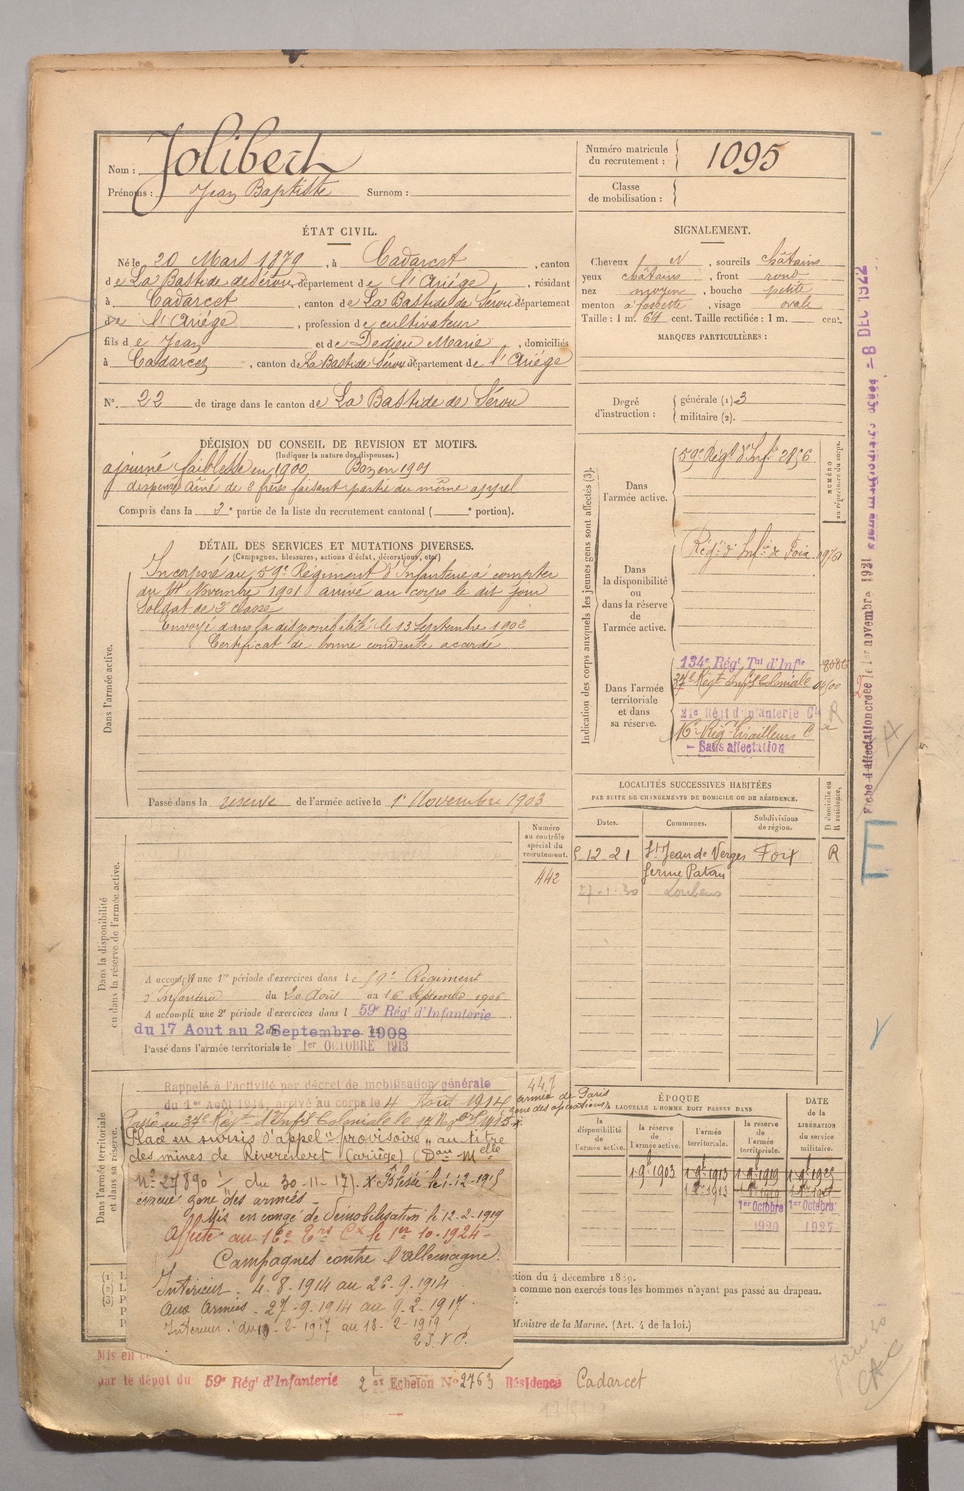 Nom : Jolibert
Prénoms : Jean Baptiste Surnom :
Numéro matricule du recrutement : 1095
Classe de mobilisation :
ÉTAT CIVIL.
Né le 20 Mars 1879, à Cadarcet, canton
de La Bastide de Sérou, département de l'Ariége, résidant
à Cadarcet, canton de La Bastide de Sérou département
de l'Ariége, profession de cultivateur
fils de Jean et de Dedieu Marie, domiciliés
à Cadarcet, canton de La Bastide Sérou département de l'Ariége
N° 22 de tirage dans le canton de La Bastide de Sérou
SIGNALEMENT.
Cheveux N, sourcils châtains
yeux châtains, front rond
nez moyen, bouche petite
menton à fossette, visage ovale
Taille : 1 m. 64 cent. Taille rectifiée : 1 m. cent.
MARQUES PARTICULIÈRES :
Degré d'instruction : générale (1) 3
militaire (2).
DÉCISION DU CONSEIL DE REVISION ET MOTIFS.
(Indiquer la nature des dispenses.)
ajourné faiblesse en 1900. Bon en 1901
dispensé Aîné de 2 frères faisant partie du même appel
Compris dans la 3e partie de la liste du recrutement cantonal ( e portion).
DÉTAIL DES SERVICES ET MUTATIONS DIVERSES.
(Campagnes, blessures, actions d'éclat, décorations, etc.)
Dans l'armée active.
Incorporé au 59e Régiment d'Infanterie à compter
du 14 Novembre 1901 arrivé au corps le dit jour
Soldat de 2e classe
Envoyé dans la disponibilité le 13 Septembre 1902
Certificat de bonne conduite accordé.
Passé dans la réserve de l'armée active le 1er Novembre 1903
Indication des corps auxquels les jeunes gens sont affectés (3).
NUMÉRO au répertoire du corps.
Dans l'armée active.
59e Régt d'Infie 2856
Dans la disponibilité ou dans la réserve de l'armée active.
Régt d'Infie de Foix
Dans l'armée territoriale et dans sa réserve.
134e Régt Tal d'Infie
37e Régt Infie Coloniale
21e Régt d'Infanterie Cle
16e Rég Tirailleurs
- Sans affectation
LOCALITÉS SUCCESSIVES HABITÉES
PAR SUITE DE CHANGEMENTS DE DOMICILE OU DE RÉSIDENCE.
Dates. Communes. Subdivisions de région. D domicile ou R résidence.
5.12.21 St Jean de Verges Foix R
ferme Patau
27.1.30 Loubens
Dans la disponibilité ou dans la réserve de l'armée active.
Numéro au contrôle spécial du recrutement.
442
A accompli une 1re période d'exercices dans le 59e Régiment
d'Infanterie du 20 Août au 16 Septembre 1906
A accompli une 2e période d'exercices dans l 59e Régt d'Infanterie
du 17 Aout au 2 Septembre 1908
Passé dans l'armée territoriale le 1er OCTOBRE 1913
Dans l'armée territoriale et dans sa réserve.
Rappelé à l'activité par décret de mobilisation générale
du 1er Août 1914, arrivé au corps le 4 Août 1914
447
armée de Paris
zone des opérations
Placé en sursis d'appel "provisoire" au titre
des mines de Riverenert (Ariége) (Don Mlle
No 27890 du 30-11-17).
évacué zone des armées -
Mis en congé de démobilisation le 12-2-1919
Affecté au 16e Ers Cx le 1er 10-1924 -
Campagnes contre l'Allemagne.
Intérieur : 4.8.1914 au 26.9.1914
Aux Armées - 27-9-1914 au 9.2.1917.
Intérieur : du 10-2-1917 au 18-2-1919
ÉPOQUE
A LAQUELLE L'HOMME DOIT PASSER DANS
la disponibilité de l'armée active.
la réserve de l'armée active.
l'armée territoriale.
la réserve de l'armée territoriale.
DATE de la LIBÉRATION du service militaire.
1.9b.1903 1.9b.1913 1.9b.1919 1.9b.1925
1er Octobre 1920
1er Octobre 1927
ction du 4 décembre 1889.
a comme non exercés tous les hommes n'ayant pas passé au drapeau.
Ministre de la Marine. (Art. 4 de la loi.)
Mis en
par le dépôt du 59e Régt d'Infanterie 2 er Echelon No 2763 Résidence Cadarcet
Fiche d'affectation créée le 1er novembre 1921
8 DEC 1922
E